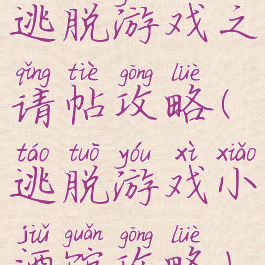 逃脱游戏之
qǐng tiè gōng lüè
请帖攻略(
táo tuō yóu xì xiǎo
逃脱游戏小
jiǔ guǎn gōng lüè
酒馆攻略)